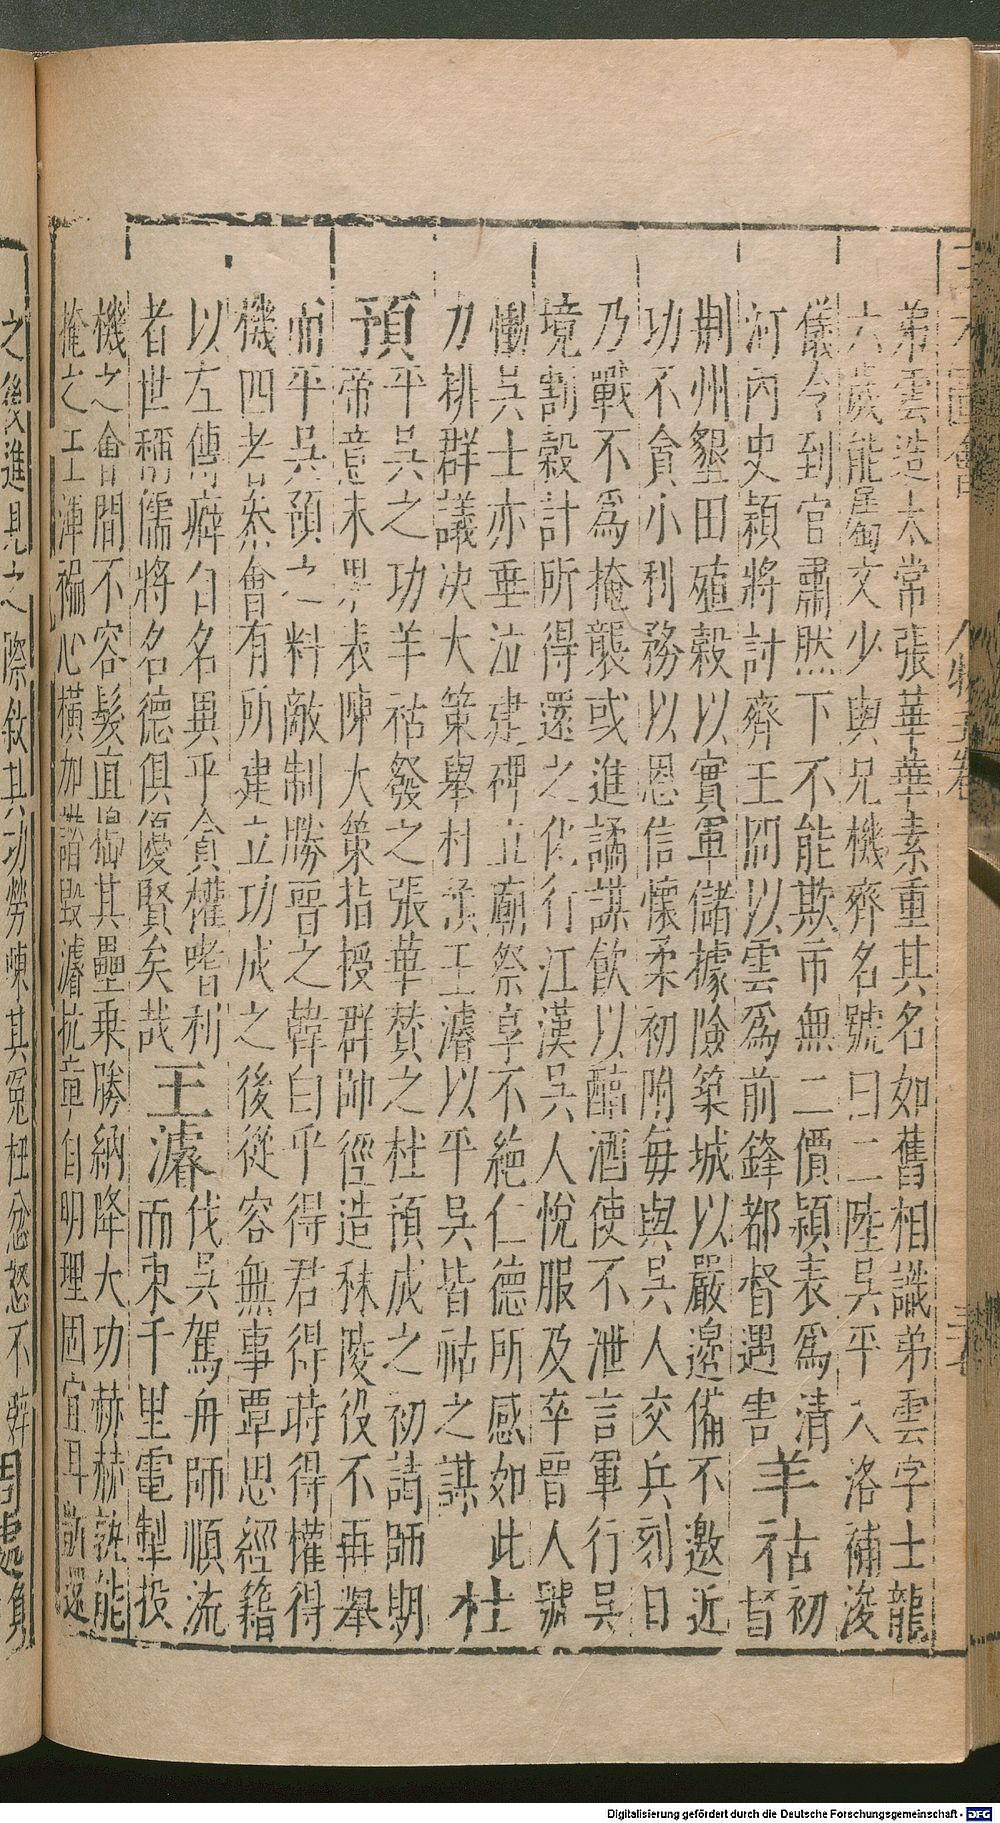 弟雲造太常張華華素重其名如舊相識弟雲字士龍
六歲能屬文少與兄機齊名號曰二陸吳平入洛補浚
儀令到官肅然下不能欺市無二價潁表爲清
河內史潁將討齊王冏以雲爲前鋒都督遇害羊祜初督
荆州墾田殖穀以實軍儲據險築城以嚴邊備不邀近
功不貪小利務以恩信懷柔初附每與吳人交兵刻日
乃戰不爲掩襲或進譎謀飲以醇酒使不泄言軍行吳
境割穀計所得還之化行江漢吳人悅服及卒晉人號
慟吳士亦垂泣建碑立廟祭享不絶仁德所感如此杜
力排群議决大策舉杜預王濬以平吳皆祜之謀
預平吳之功羊祜發之張華賛之杜預成之初請師期
帝意未畀表陳大策指授群帥徑造秣陵役不再舉
而平吳預之料敵制勝晉之韓白乎得君得時得權得
機四者叅會有所建立功成之後從容無事覃思經籍
以左傳癖自名異乎貪權嗜利
者世稱儒將名德俱優賢矣哉王濬伐吳駕舟師順流而東千里電掣投
機之會間不容髮直搗其壘乗勝納降大功赫赫孰能
掩之王渾褊心橫加讒毀濬抗章自明理固宜耳訴還
之後進見之際敘其功勞陳其冤枉忿怒不辭周處身
人物五卷
Digitalisierung gefördert durch die Deutsche Forschungsgemeinschaft - DFG